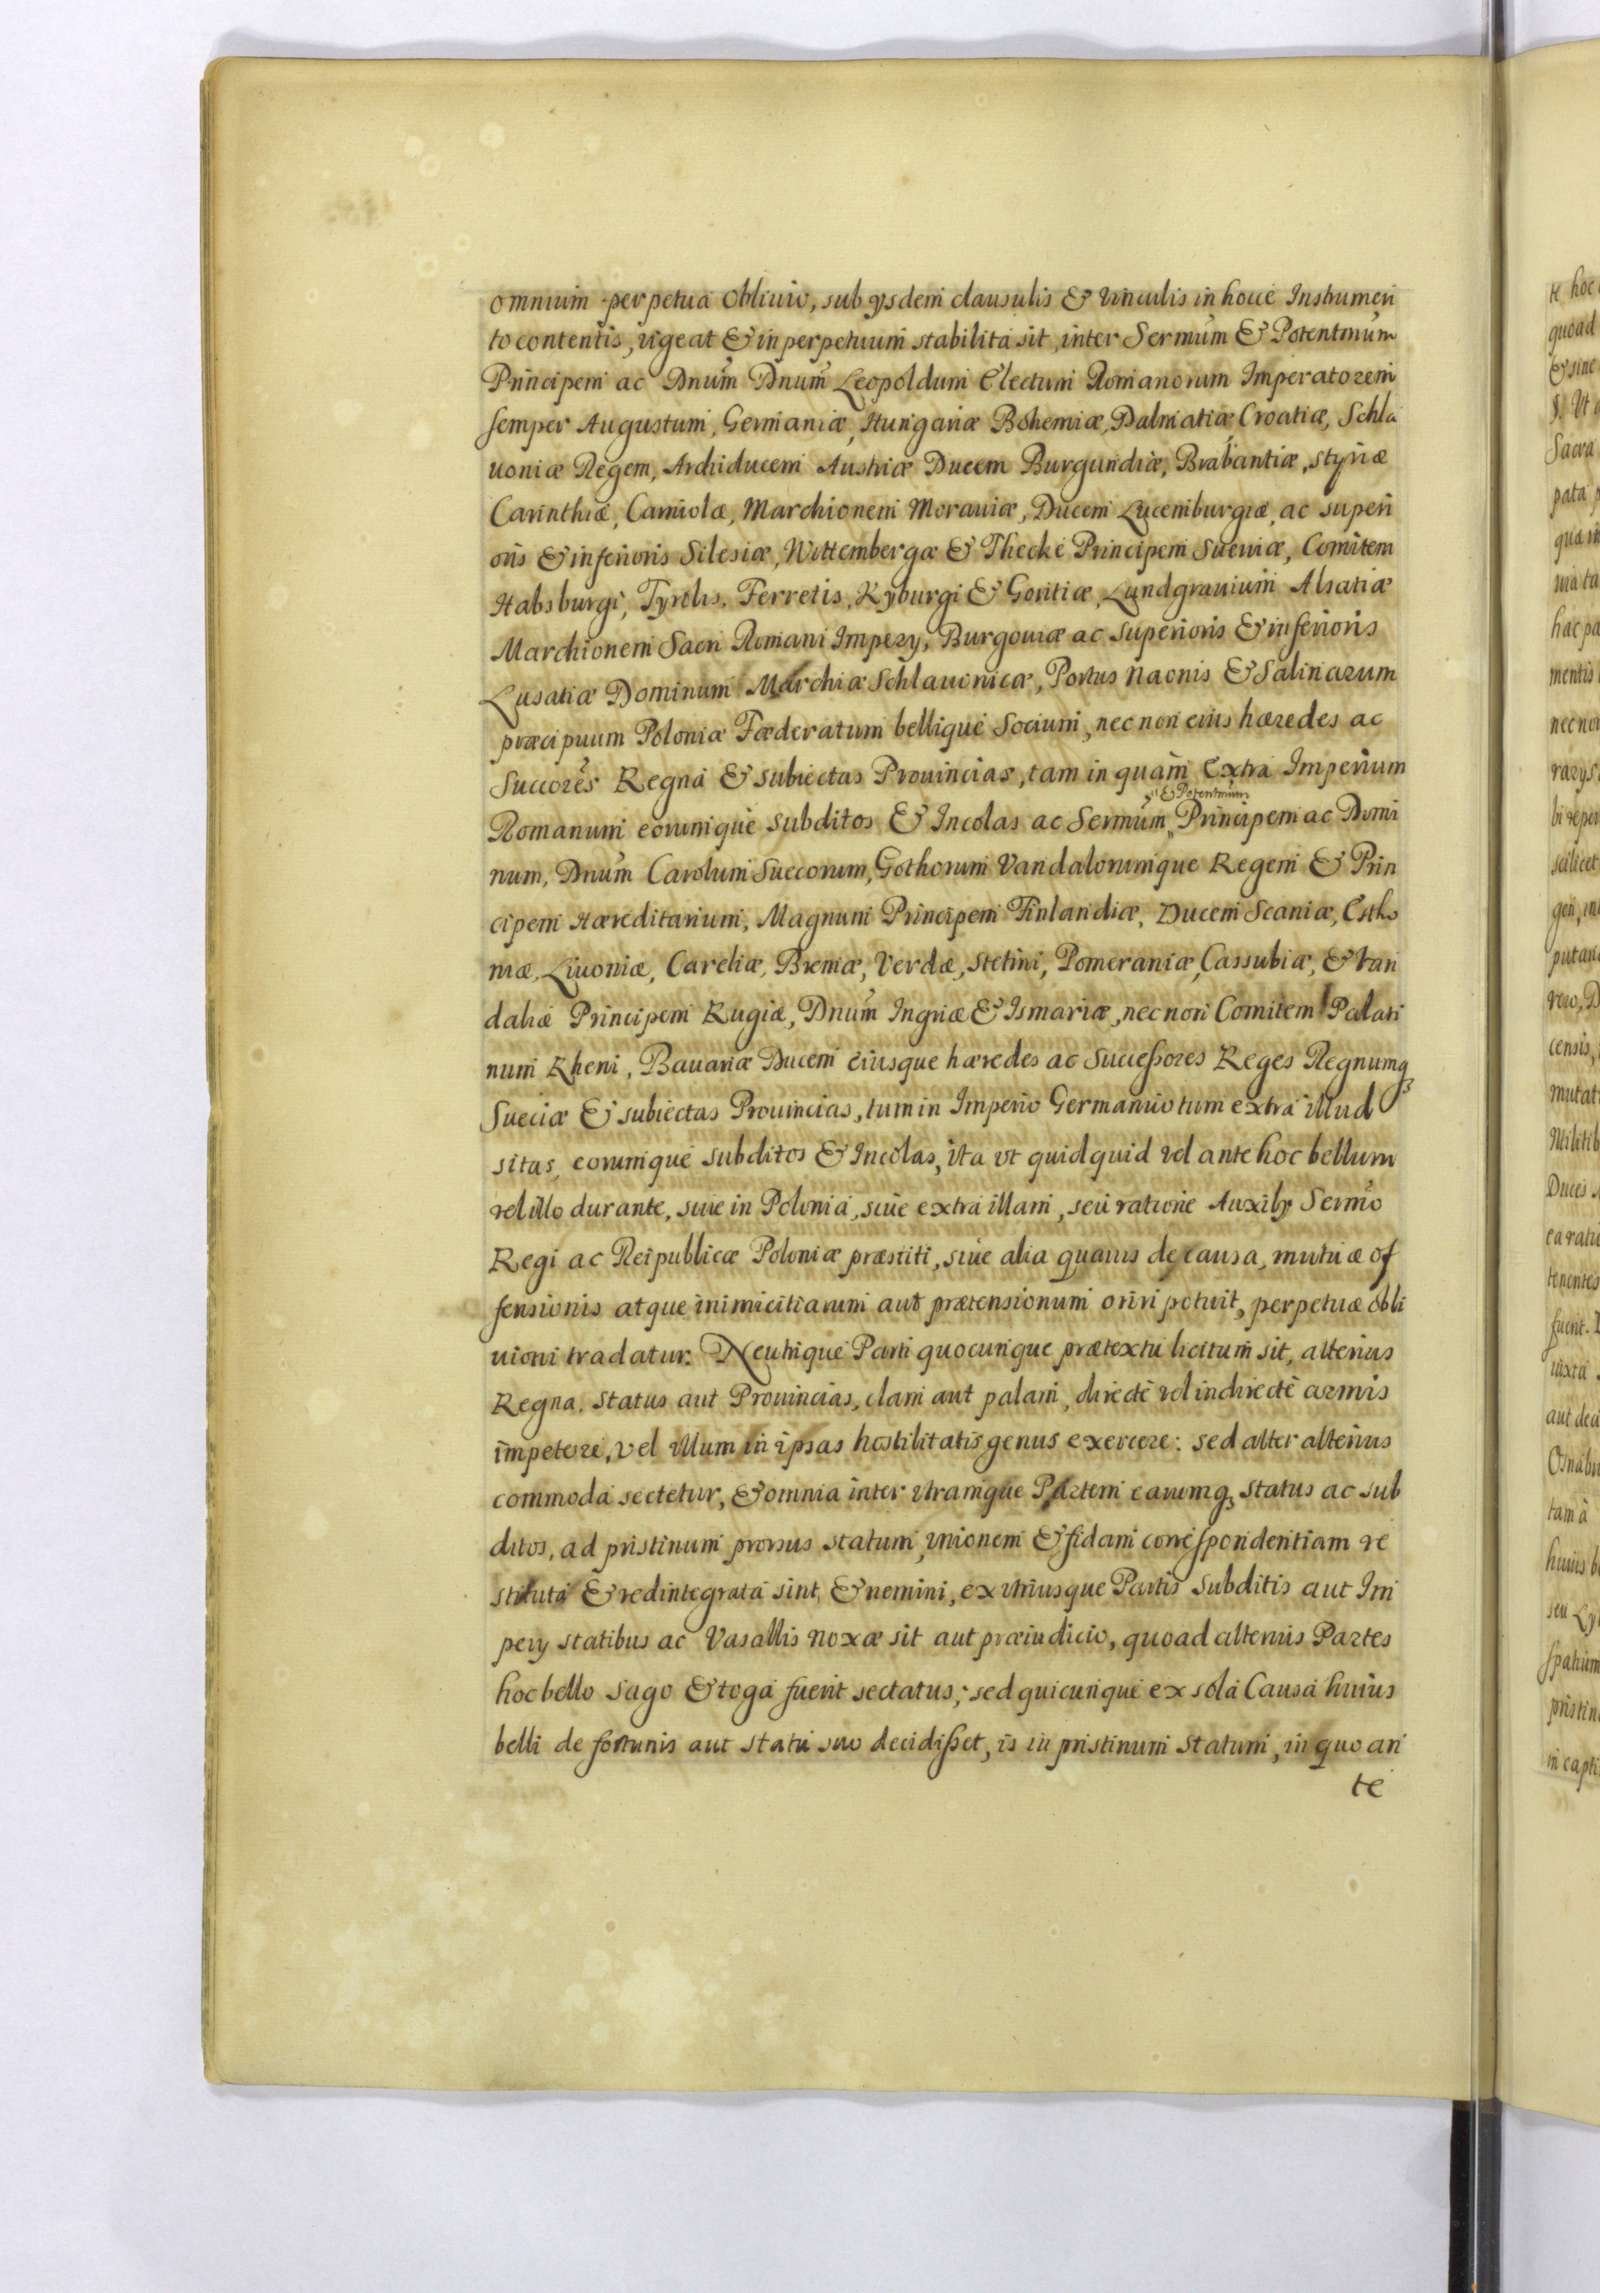 omnium perpetua oblivio, sub ijsdem clausulis & vinculis in hocce Instrumen
to contentis, vigeat & in perpetuum stabilita sit, inter Sermum & Potentmum
Principem ac Dnum Dnum Leopoldum Electum Romanorum Imperatorem
semper Augustum, Germaniæ, Hungariæ Bohemiæ, Dalmatiæ Croatiæ, Schla
uoniæ Regem, Archiducem Austriæ Ducem Burgundiæ, Brabantiæ, Styriæ
Carinthiæ, Carniolæ, Marchionem Morauiæ, Ducem Lucemburgiæ, ac superi
oris & inferioris Silesiæ, Wittembergæ & Theckè Principem Sueuiæ, Comitem
Habsburgi, Tyrolis, Ferretis, Kyburgi & Goritiæ, Landgrauium Alsatiæ
Marchionem Sacri Romani Impery, Burgouiæ ac Superioris & inferioris
Lusatiæ Dominum Marchiæ Schlauonicæ, Portus Naonis & Salinarum
præcipuum Poloniæ Fœderatum bellique Socium, nec non eius hæredes ac
Succores Regna & subiectas Prouincias, tam in quam extra Imperium
& Potentmum
Romanum eorumque subditos & Incolas ac Sermum Principem ac Domi
num, Dnum Carolum Suecorum, Gothorum Vandalorumque Regem & Prin
cipem Hæreditarium, Magnum Principem Finlandiæ, Ducem Scaniæ, Estho
niæ, Liuoniæ, Careliæ, Bremæ, Verdæ, Stetini, Pomeraniæ, Cassubiæ, & Van
daliæ Principem Rugiæ, Dnum Ingriæ & Ismariæ, nec non Comitem Palati
num Rheni, Bauariæ Ducem eiusque hæredes ac Successores Reges Regnumq
Sueciæ & subiectas Prouincias, tum in Imperio Germanico tum extra illud
sitas, eorumque subditos & Incolas, ita vt quidquid vel ante hoc bellum
vel illo durante, siue in Polonia, siue extra illam, seu ratione Auxily Sermo
Regi ac Reipublicæ Poloniæ præstiti, siue alia quauis de causa, mutuæ of
fensionis atque inimicitiarum aut prætensionum oriri potuit, perpetuæ obli
uioni tradatur. Neutrique Parti quocunque prætextu licitum sit, alterius
Regna, Status aut Prouincias, clam aut palam, directè vel indirectè armis
impetere, vel ullum in ipsas hostilitatis genus exercere: sed alter alterius
commoda sectetur, & omnia inter vtramque Partem earumq Status ac sub
ditos, ad pristinum prorsus statum, vnionem & fidam correspondentiam re
stituta & redintegrata sint, & nemini, ex vtriusque Partis Subditis aut Im
pery statibus ac Vasallis noxæ sit aut præiudicio, quoad alterius Partes
hoc bello sago & toga fuerit sectatus; sed quicunque ex sola Causa huius
belli de fortunis aut statu suo decidisset, is in pristinum statum, in quo an
te